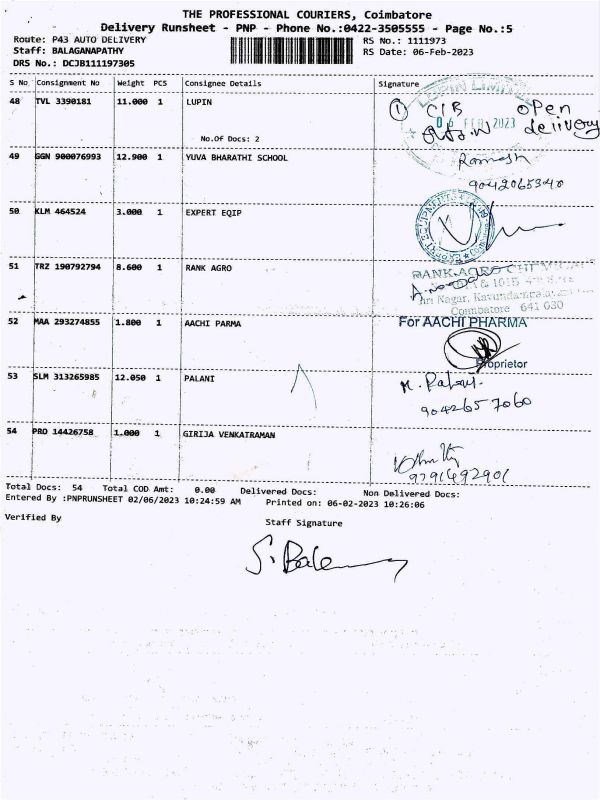 THE PROFESSIONAL COURIERS, Coimbatore
Delivery Runsheet - PNP - Phone No.:0422-3505555 - Page No.:5
Route: P43 AUTO DELIVERY
RS No.: 1111973
Staff: BALAGANAPATHY
RS Date: 06-Feb-2023
DRS No.: DCJB111197305
S No Consignment No Weight PCS Consignee Details Signature
48 TVL 3390181 11.000 1 LUPIN
LUPIN LIMITED
① C/B open
06 FEB 2023 delivery
No.Of Docs: 2
49 GGN 900076993 12.900 1 YUVA BHARATHI SCHOOL
Ramesh
9042065340
50 KLM 464524 3.000 1 EXPERT EQIP
51 TRZ 190792794 8.600 1 RANK AGRO
RANK AGRO
Coimbatore 641 030
52 MAA 293274855 1.800 1 AACHI PARMA
For AACHI PHARMA
Proprietor
53 SLM 313265985 12.050 1 PALANI
M. Palani
9042657060
54 PRO 14426758 1.000 1 GIRIJA VENKATRAMAN
9791692901
Total Docs: 54 Total COD Amt: 0.00 Delivered Docs: Non Delivered Docs:
Entered By :PNPRUNSHEET 02/06/2023 10:24:59 AM Printed on: 06-02-2023 10:26:06
Verified By
Staff Signature